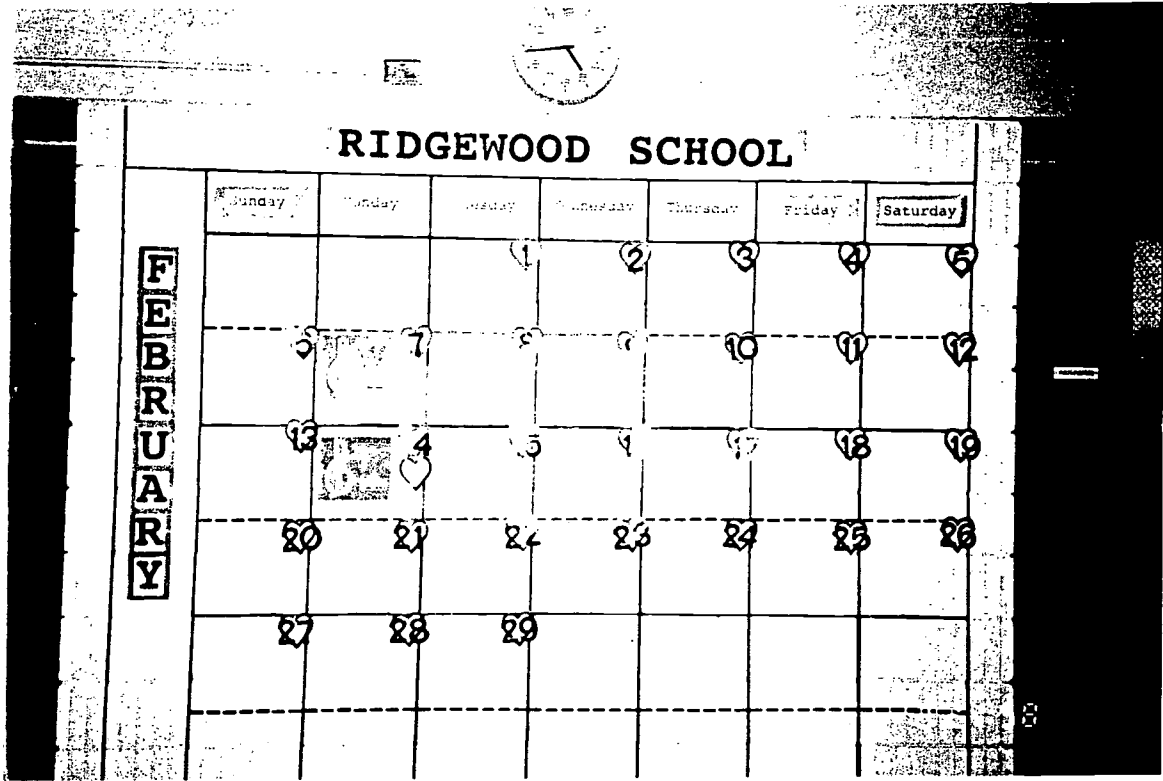 RIDGEWOOD SCHOOL
Sunday Tuesday Wednesday Thursday Friday Saturday
FEBRUARY
1 2 3 4 5
6 7 8 9 10 11 12
13 4 15 1 17 18 19
20 21 22 23 24 25 26
27 28 29